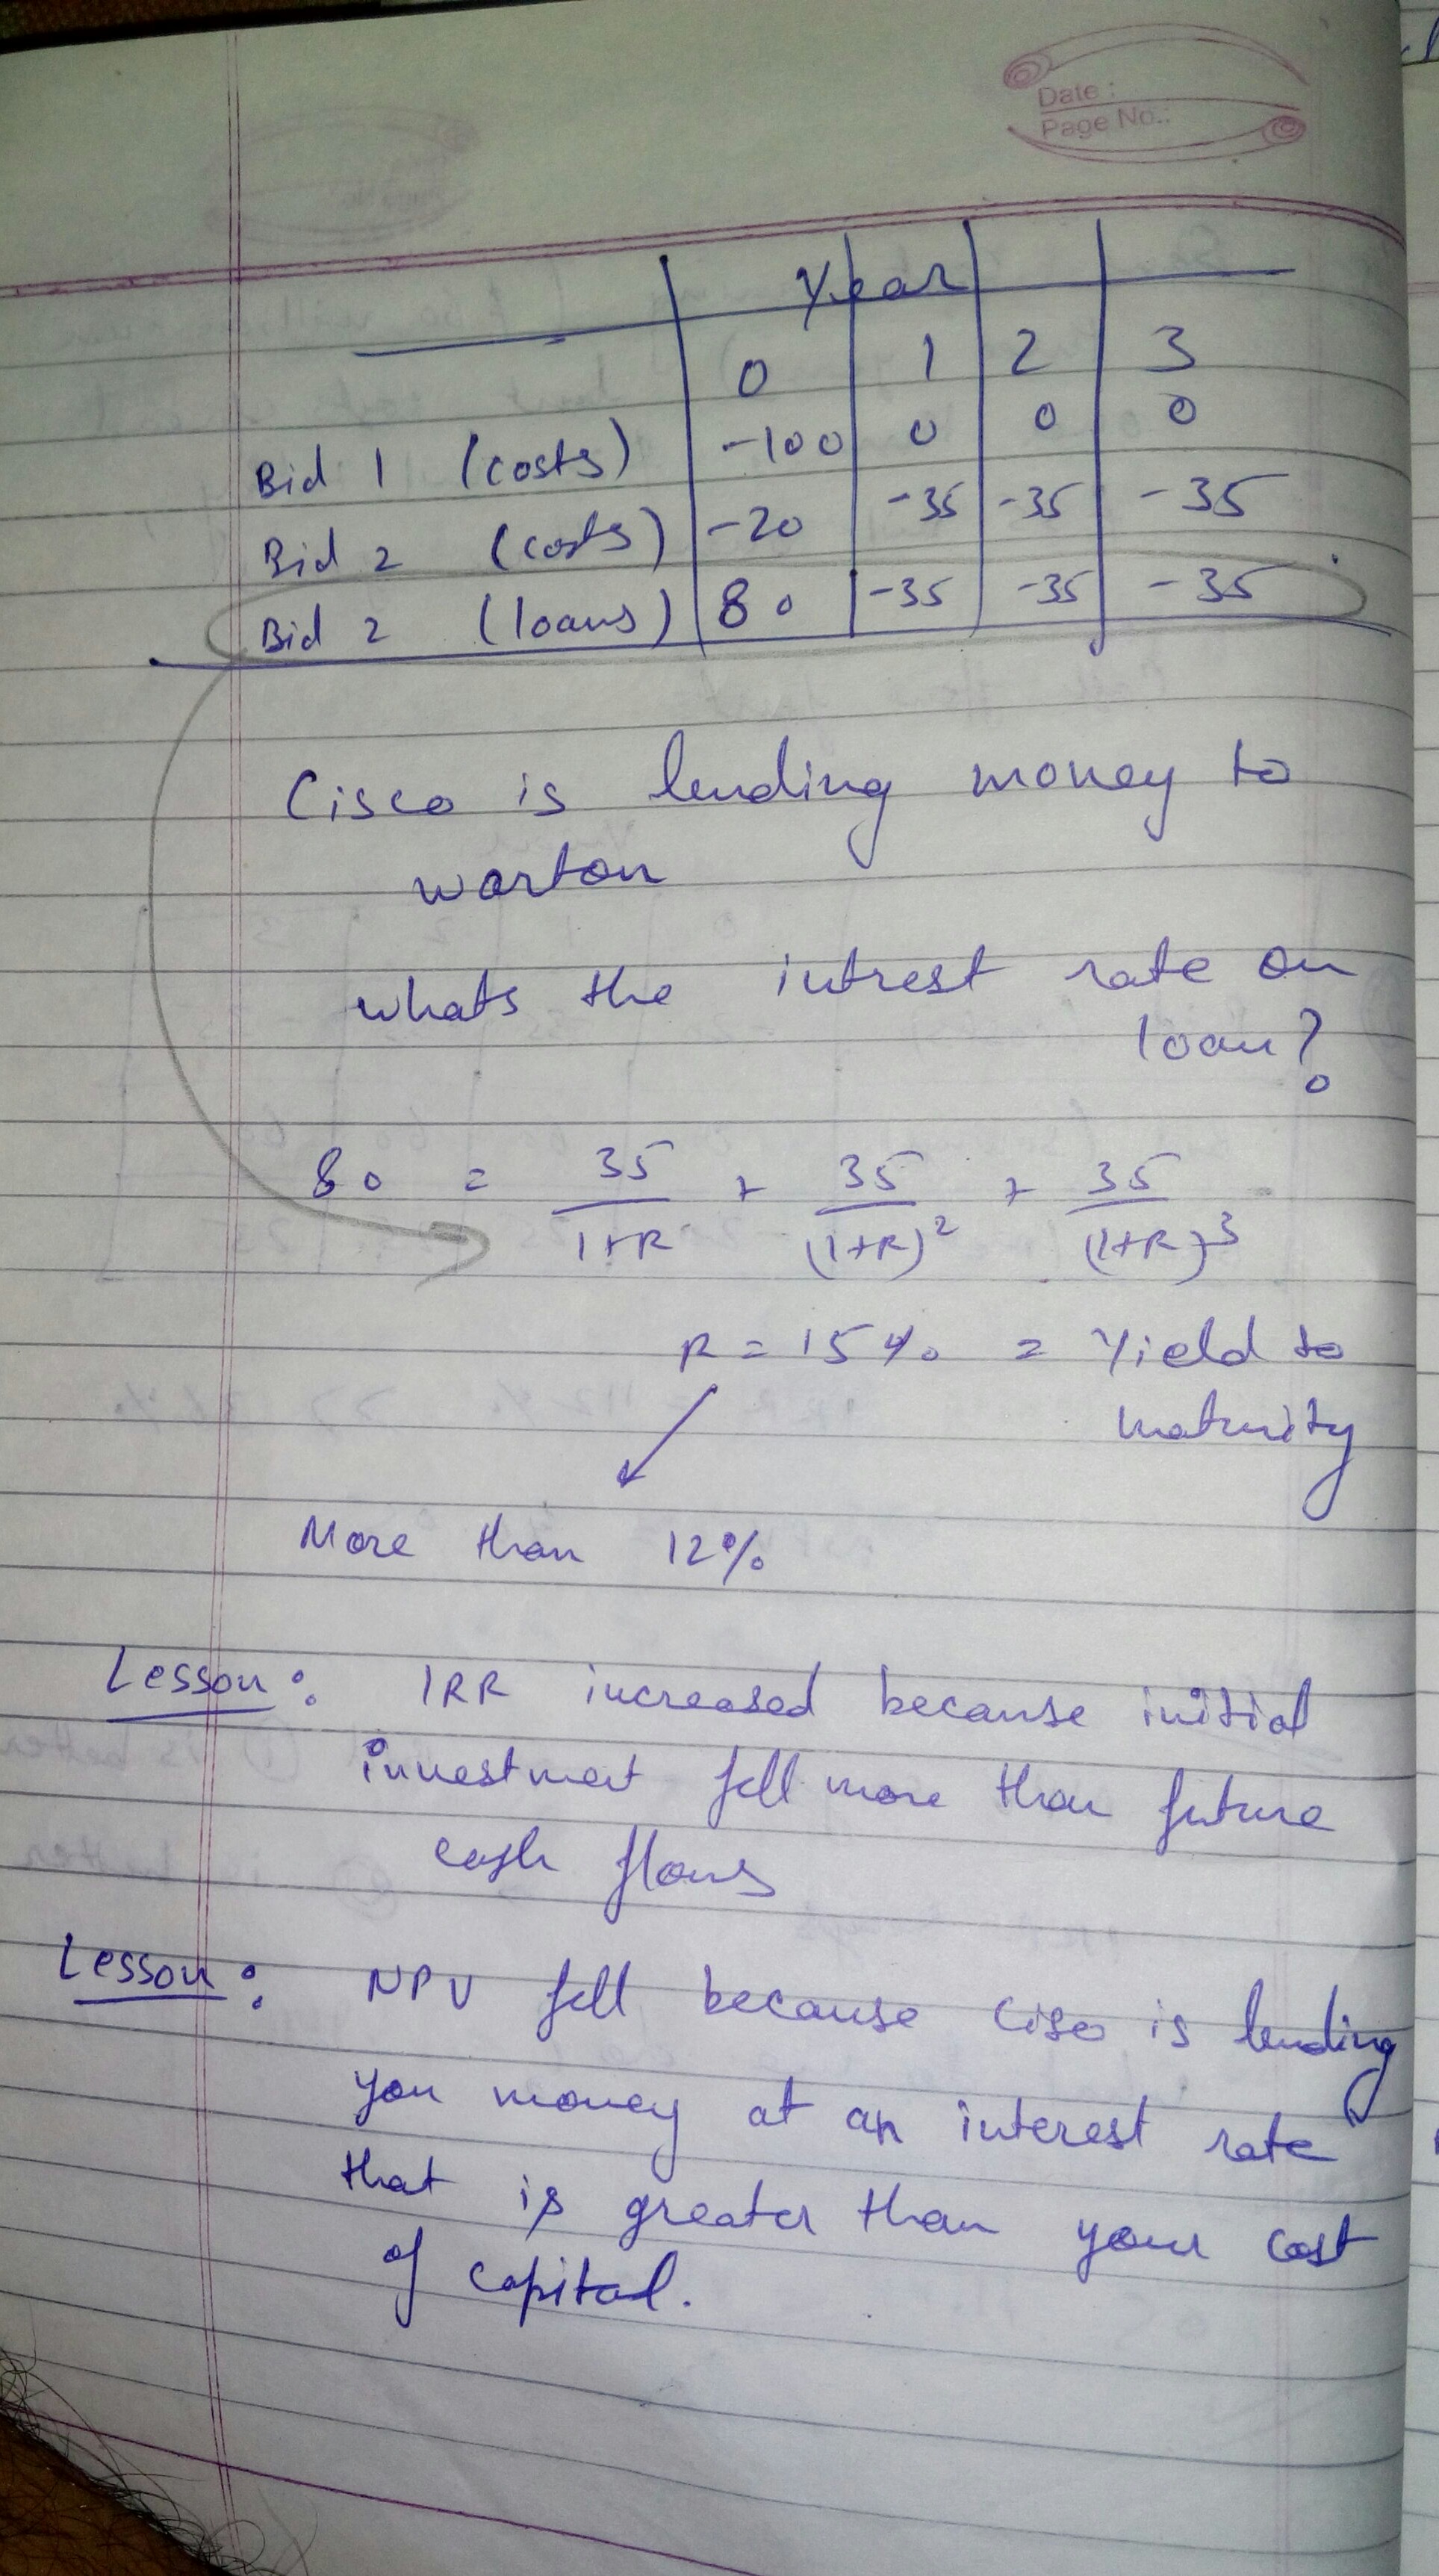 Date :
Page No.:
Year
0 1 2 3
Bid 1 (costs) -100 0 0 0
Bid 2 (costs) -20 -35 -35 -35
Bid 2 (loans) 80 -35 -35 -35
Cisco is lending money to
warton
whats the intrest rate on
loan?
80 = 35/(1+R) + 35/(1+R)² + 35/(1+R)³
R = 15% = Yield to
maturity
More than 12%
Lesson: IRR increased because initial
investment fell more than future
cash flows
Lesson: NPV fell because Ciso is lending
you money at an interest rate
that is greater than your cost
of capital.